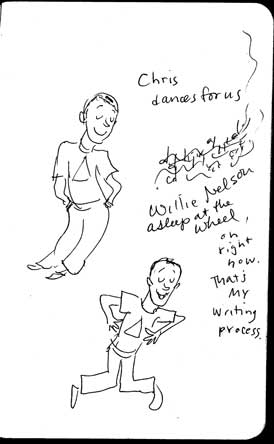 Chris
dances for us
Willie Nelson
asleep at the
wheel,
on
right
now.
That's
my
writing
process.